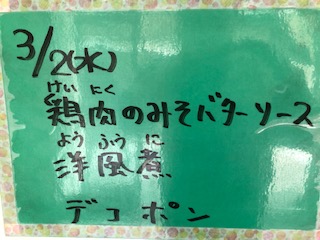 3/2(水)
けい にく
鶏肉のみそバターソース
よう ふう に
洋風煮
デコポン